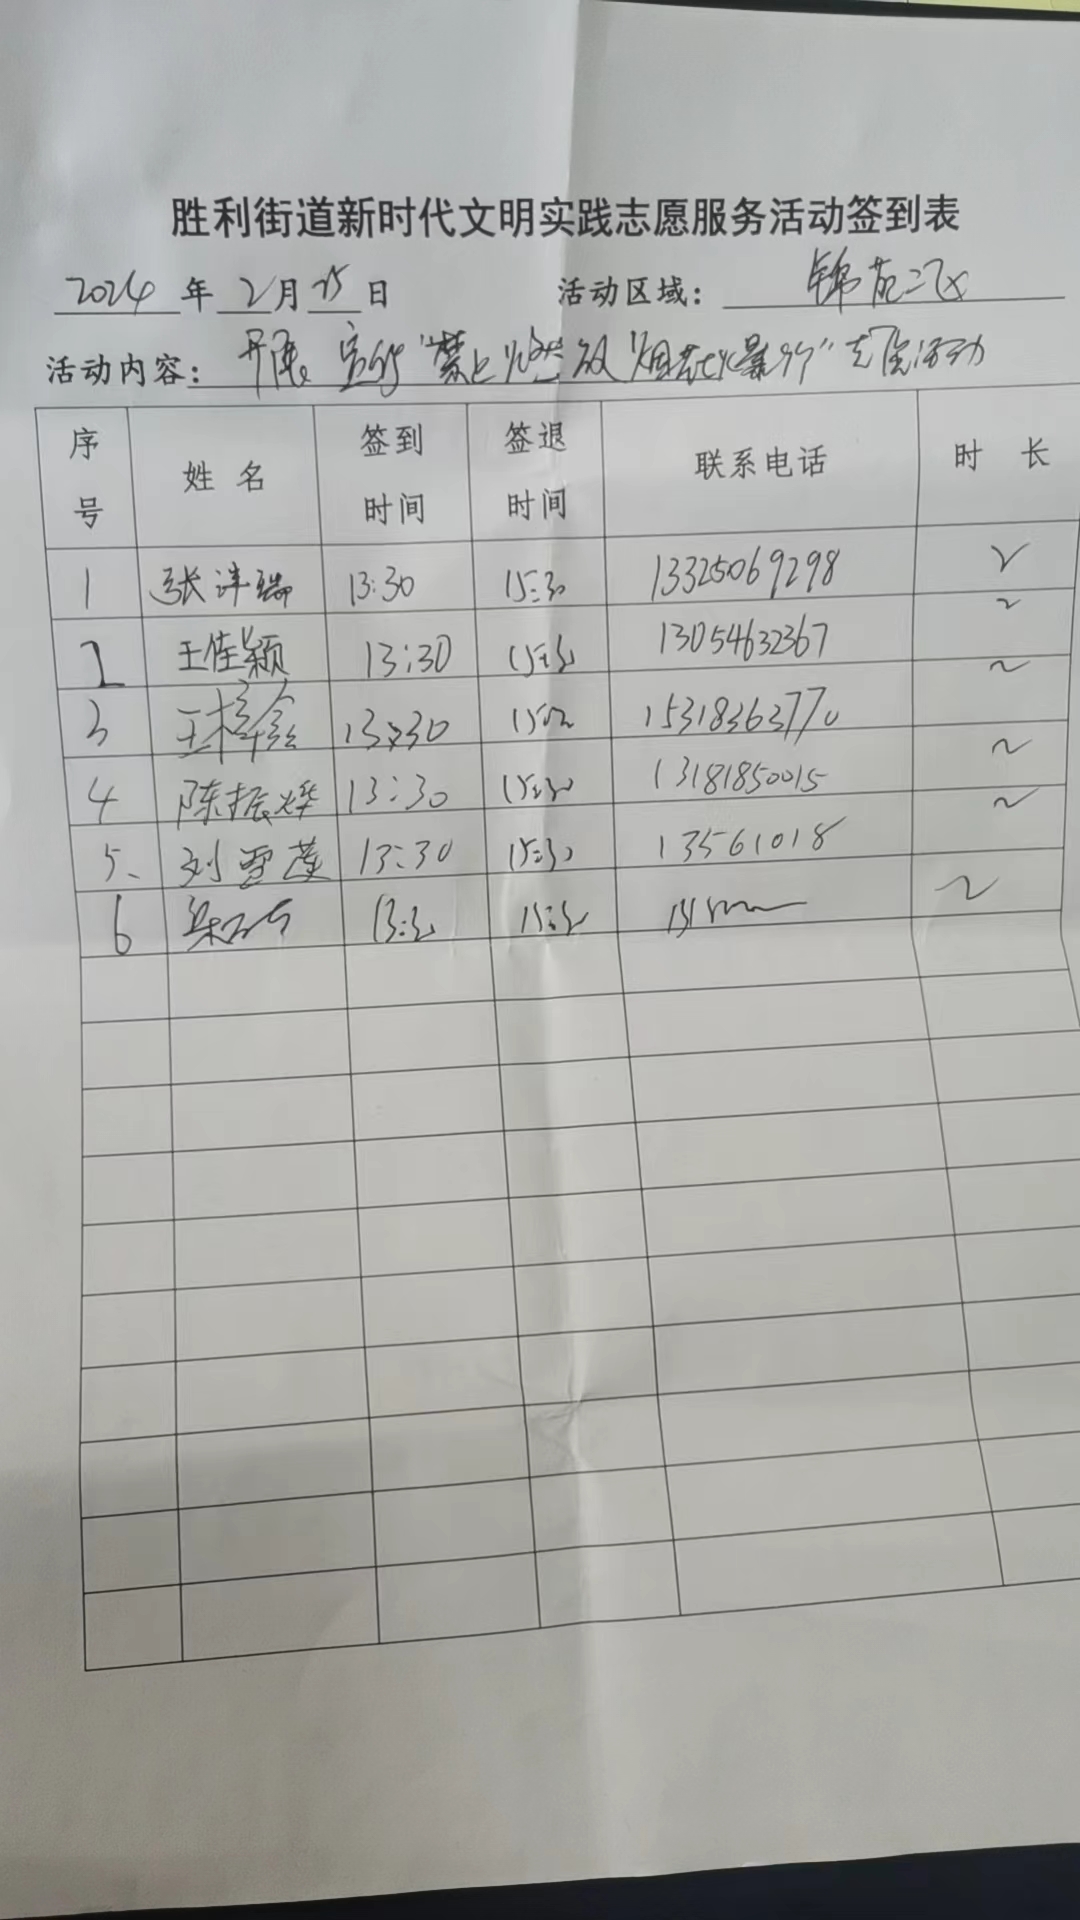 胜利街道新时代文明实践志愿服务活动签到表
2024 年 2月 25 日 活动区域: 锦苑二区
活动内容: 开展 "禁止燃放烟花爆竹" 志愿活动
序号 姓名 签到时间 签退时间 联系电话 时长
1 张洋瑞 13:30 15:30 13325069298 2
2 王佳颖 13:30 15:30 13054632367 2
3 王梓 13:30 15:30 15318363770 2
4 陈振烨 13:30 15:30 13181850015 2
5、 刘雪莲 13:30 15:30 13561018 2
6 13:30 15:30 2